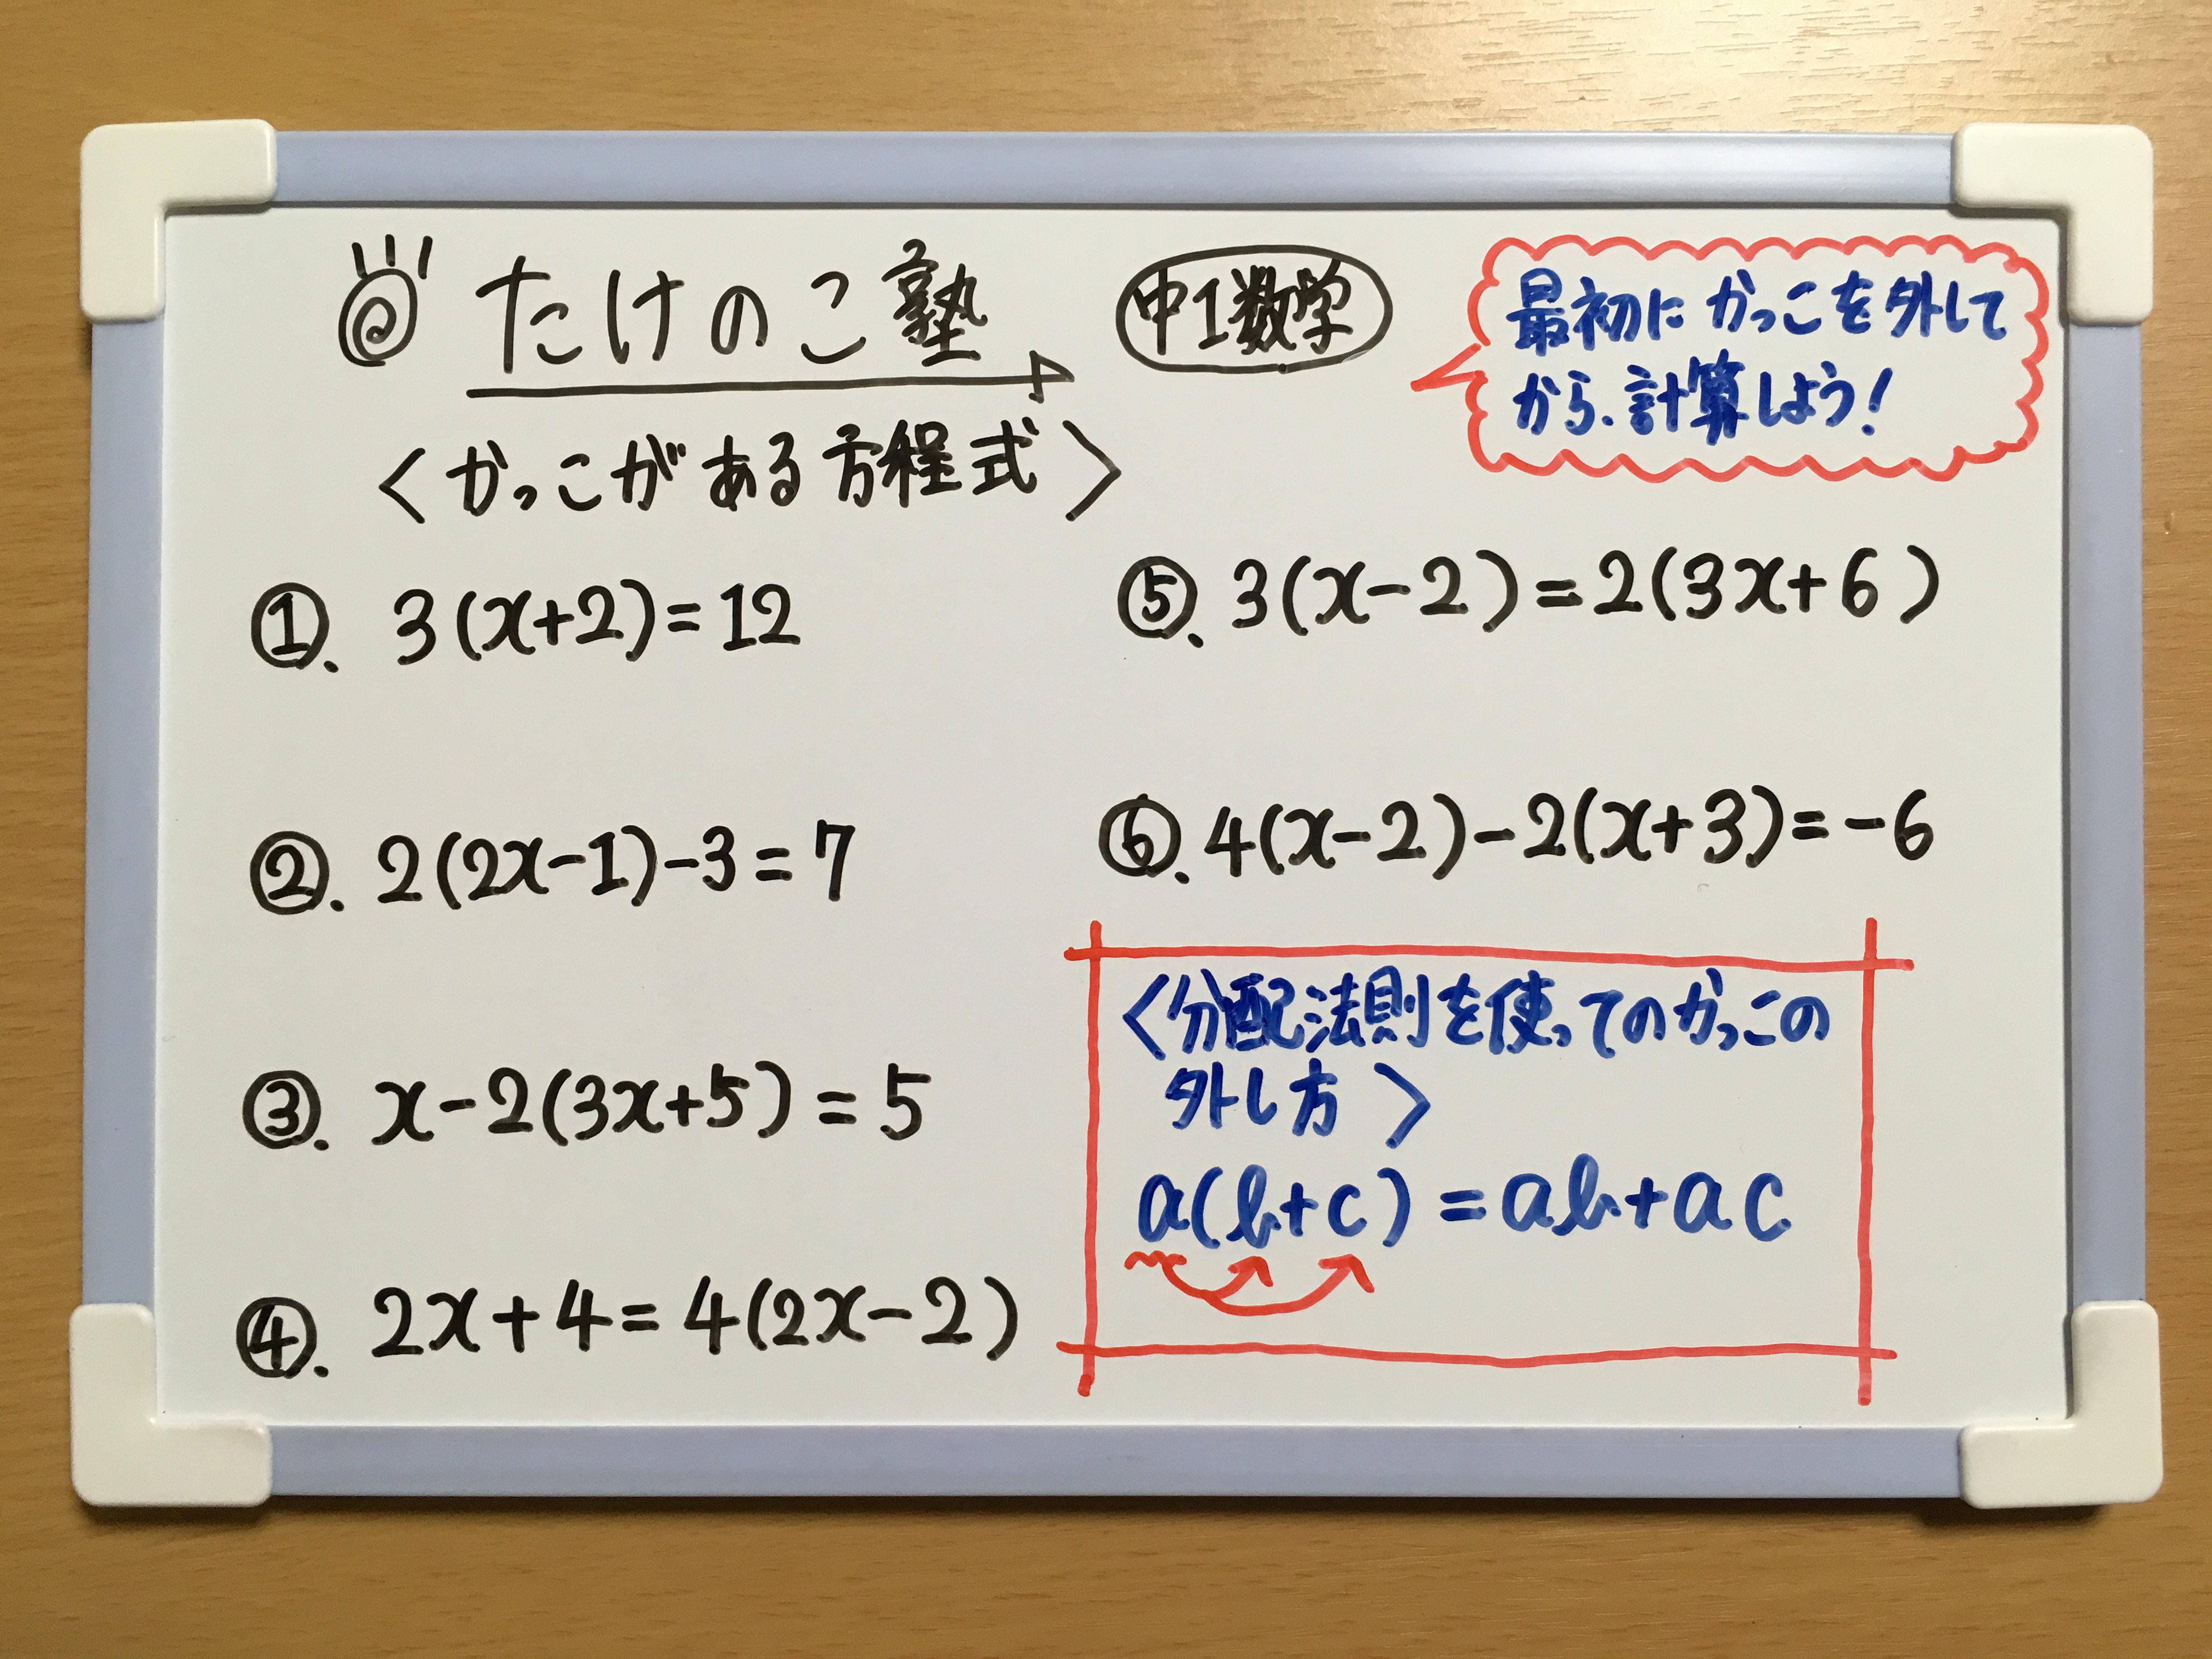 たけのこ塾
中1数学
最初にかっこを外して
から、計算しよう!
<かっこがある方程式>
①. 3(x+2)=12
②. 2(2x-1)-3=7
③. x-2(3x+5)=5
④. 2x+4=4(2x-2)
⑤. 3(x-2)=2(3x+6)
⑥. 4(x-2)-2(x+3)=-6
<分配法則を使ってのかっこの
外し方>
a(b+c)=ab+ac